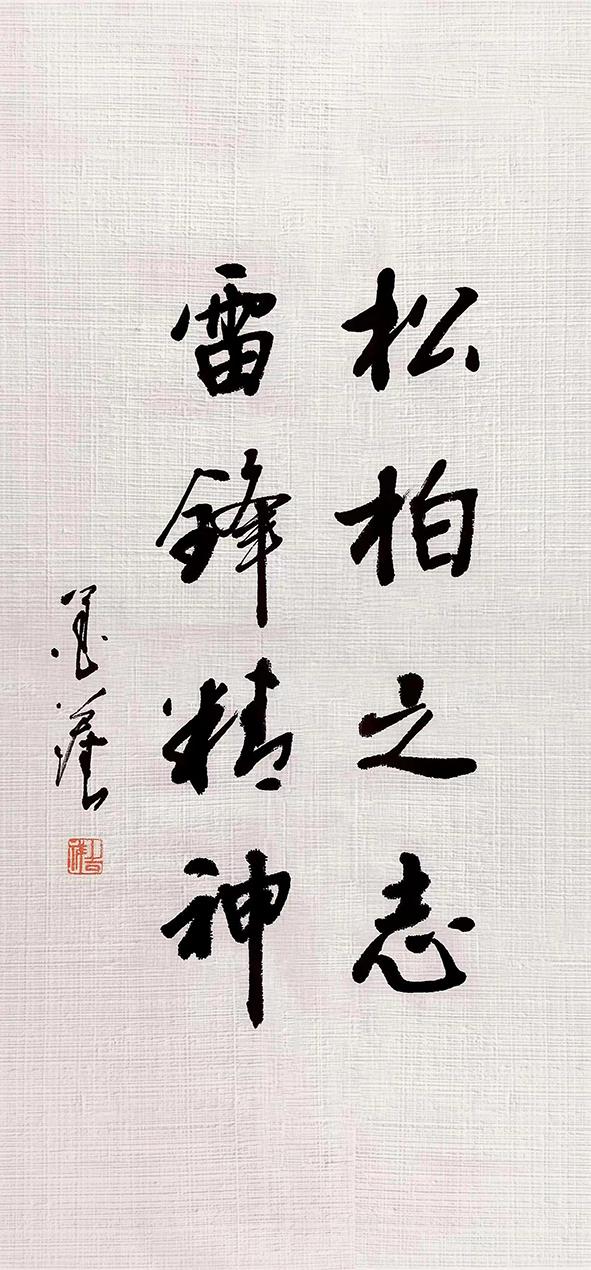 松柏之志
雷锋精神